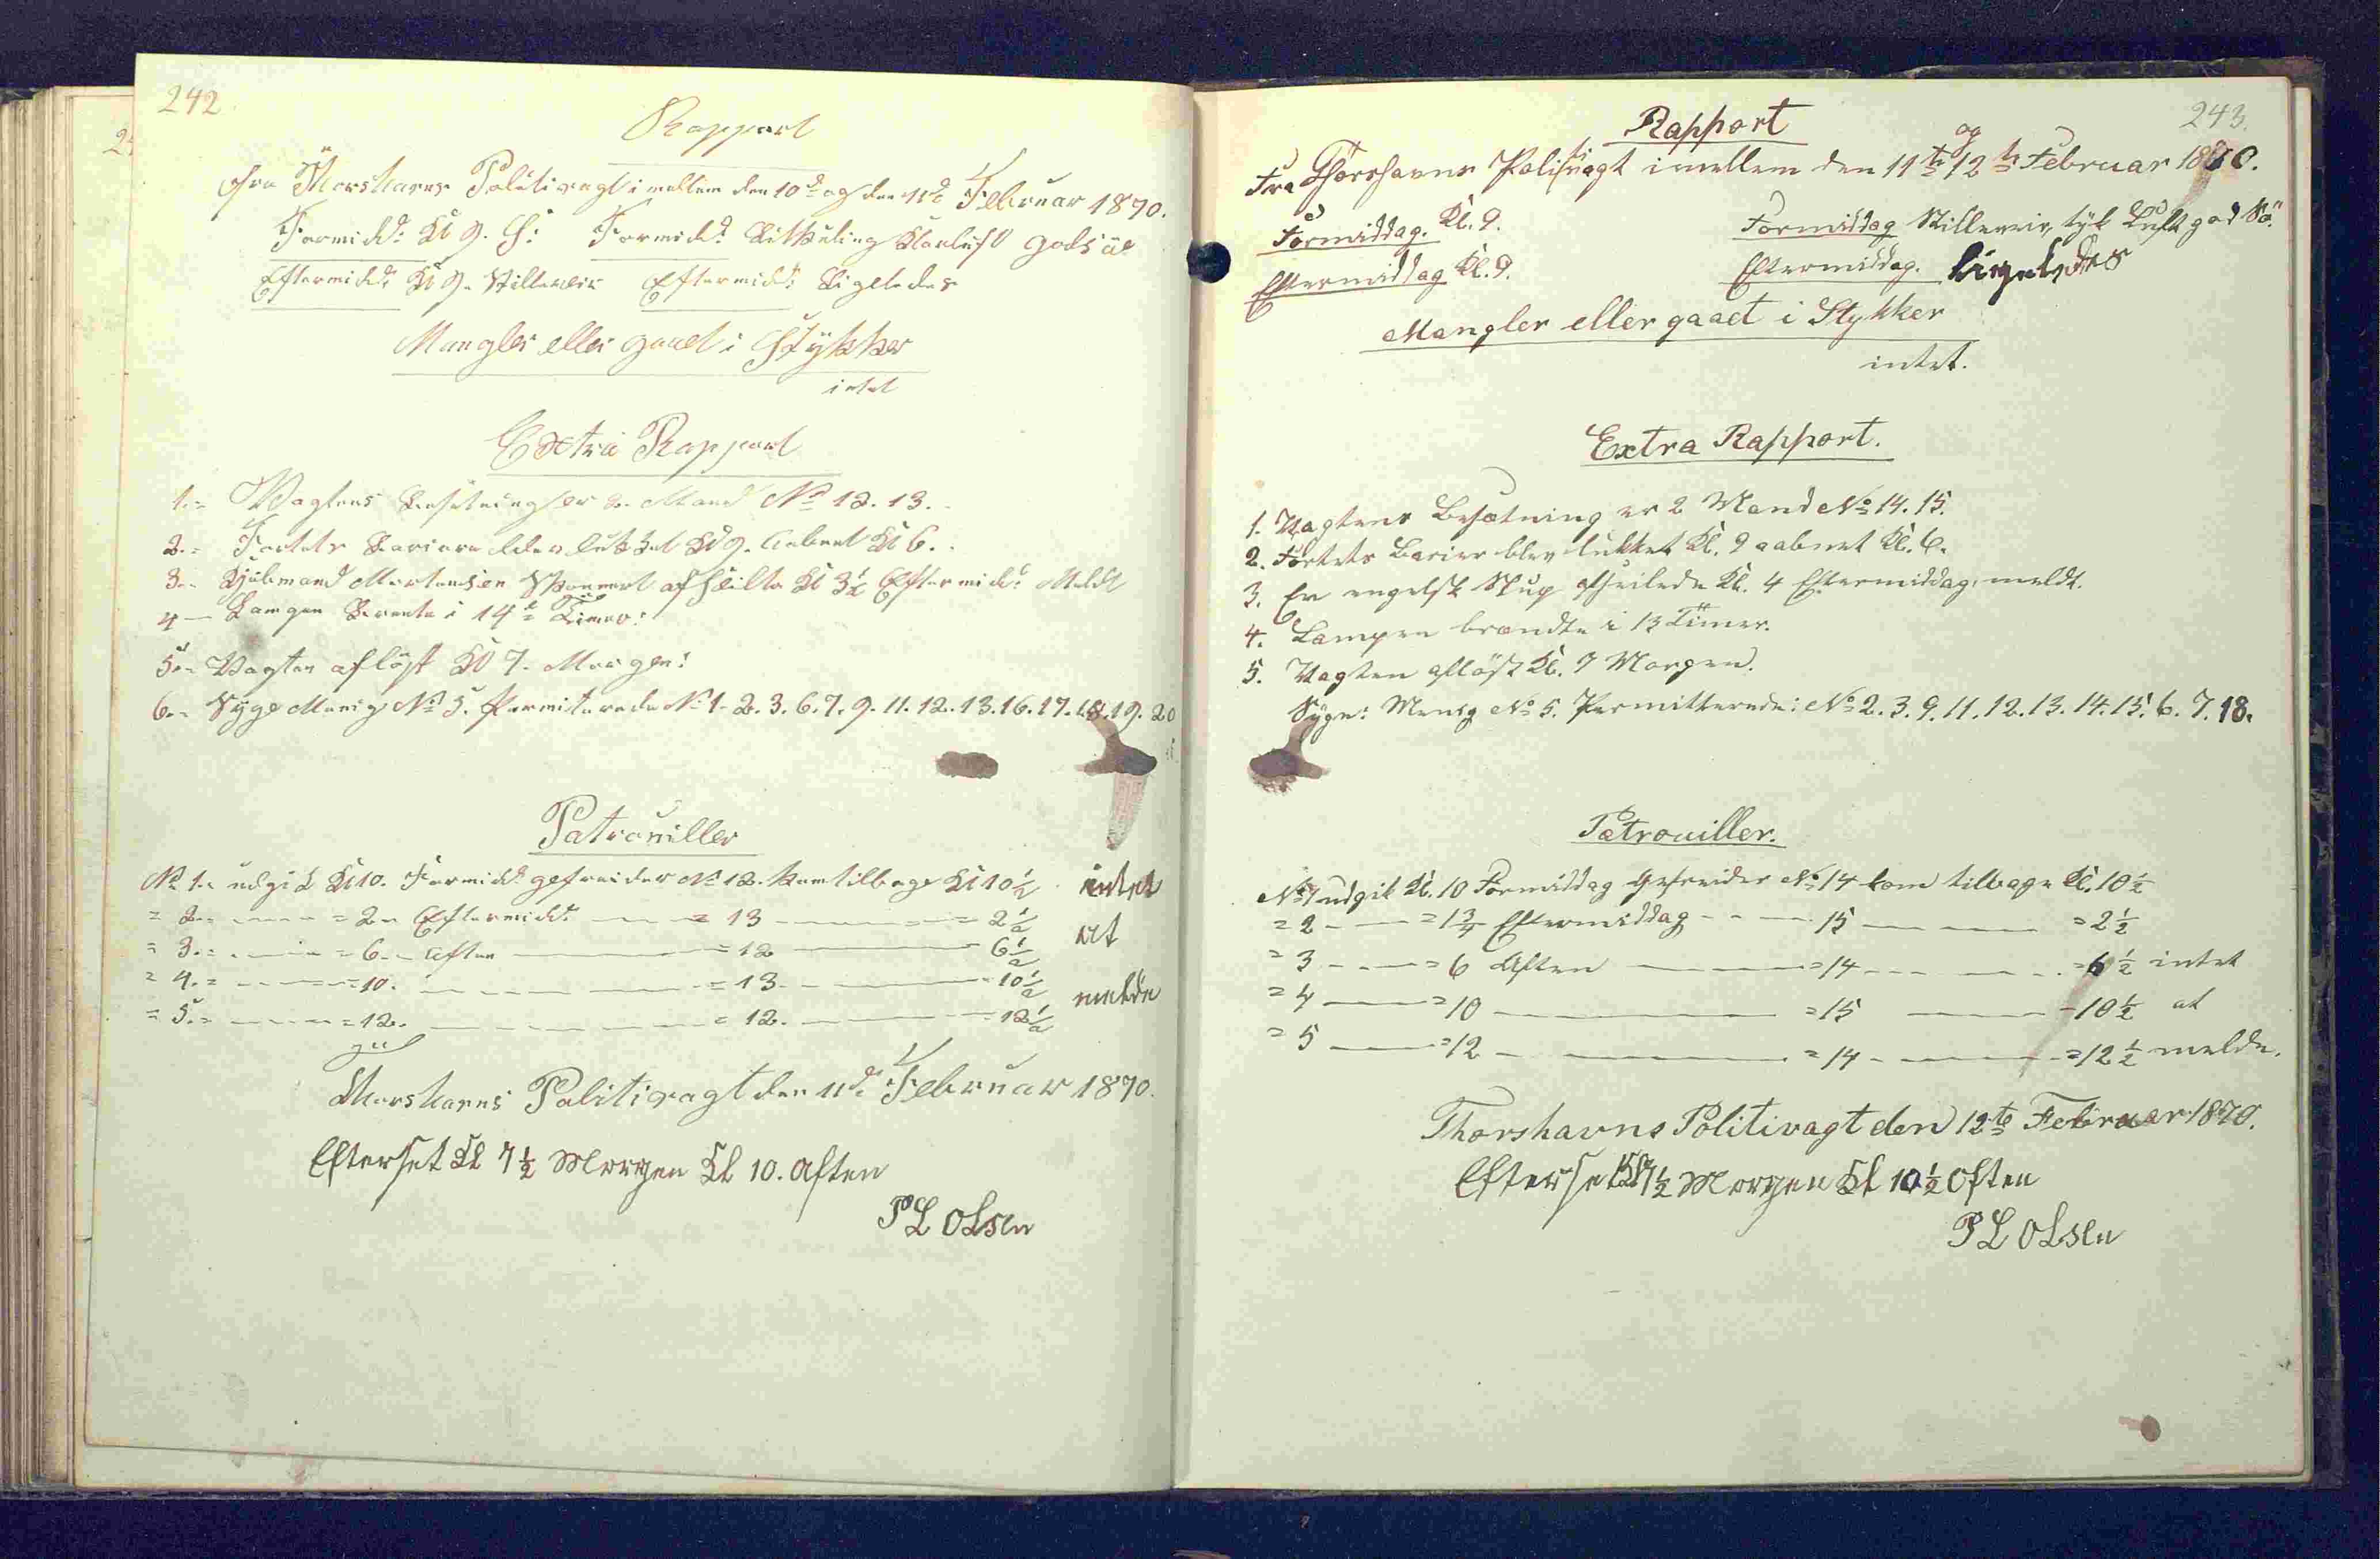 242
Rapport
Fra Thorshavns Politivagt imellem den 10d og den 11d Februar 1870.
Formidd: Kl 9. S: Formidd: Litkuling Klarluft god Sö
Eftermidd: Kl 9. Stilleveir Eftermidd: Ligeledes
Mangler eller gaaet i Stykker
intet
Extra Rapport
1.= Vagtens Besetning er 2. Mand No 12. 13.
2.= Fortets Bariere blev lukket Kl 9. aabnet Kl 6.
3.= Kjöbmand Mortensen afseilte Kl 3½ Eftermidd: Meldt
4 — Lampen Brente i 14 Timer:
5.= Vagten aflöst Kl 7. Morgen:
6.= Syge Menig No 5. Permiterede No 1. 2. 3. 6. 7. 9. 11. 12. 13. 16. 17. 18. 19. 20
Patrouiller
No 1. udgik Kl 10. Formidd: gefreider No 12. kom tilbage Kl 10½ intet
= 2. — = 2 Eftermidd: — = 13 — = 2½
= 3. — = 6. Aften — = 12 — 6½ at
= 4. = — = 10. — = 13 — = 10½
= 5. = — = 12. — = 12. — = 12½ melde
Thorshavns Politivagt den 11d Februar 1870.
Efterset Kl 7½ Morgen Kl 10. Aften
P L Olsen
243.
Rapport
Fra Thorshavns Politivagt imellem den 11te og 12te Februar 1870.
Formiddag. Kl. 9. Formiddag Stilleveir, tyk Luft god Sö.
Eftermiddag Kl. 9. Eftermiddag. Ligeledes
Mangler eller gaaet i Stykker
intet.
Extra Rapport.
1. Vagtens Besætning er 2 Mand No 14. 15.
2. Fortets Barier blev lukket Kl. 9 aabnet Kl. 6.
3. En engelsk Slup afseilede Kl. 4 Eftermiddag, meldt.
4. Lampen brændte i 13 Timer.
5. Vagten aflöst Kl. 7 Morgen.
Syge: Menig No 5. Permitterede: No 2. 3. 9. 11. 12. 13. 14. 15. 6. 7. 18.
Patrouiller.
No 1 udgik Kl. 10 Formiddag Gefreider No 14 kom tilbage Kl. 10½
= 2 — = 1¾ Eftermiddag — 15 — = 2½
= 3 — = 6 Aften — = 14 — = 6½ intet
= 4 — = 10 — = 15 — = 10½ at
= 5 — = 12 — = 14 — = 12½ melde.
Thorshavns Politivagt den 12te Februar 1870.
Efterset Kl 7½ Morgen Kl 10½ Aften
P L Olsen